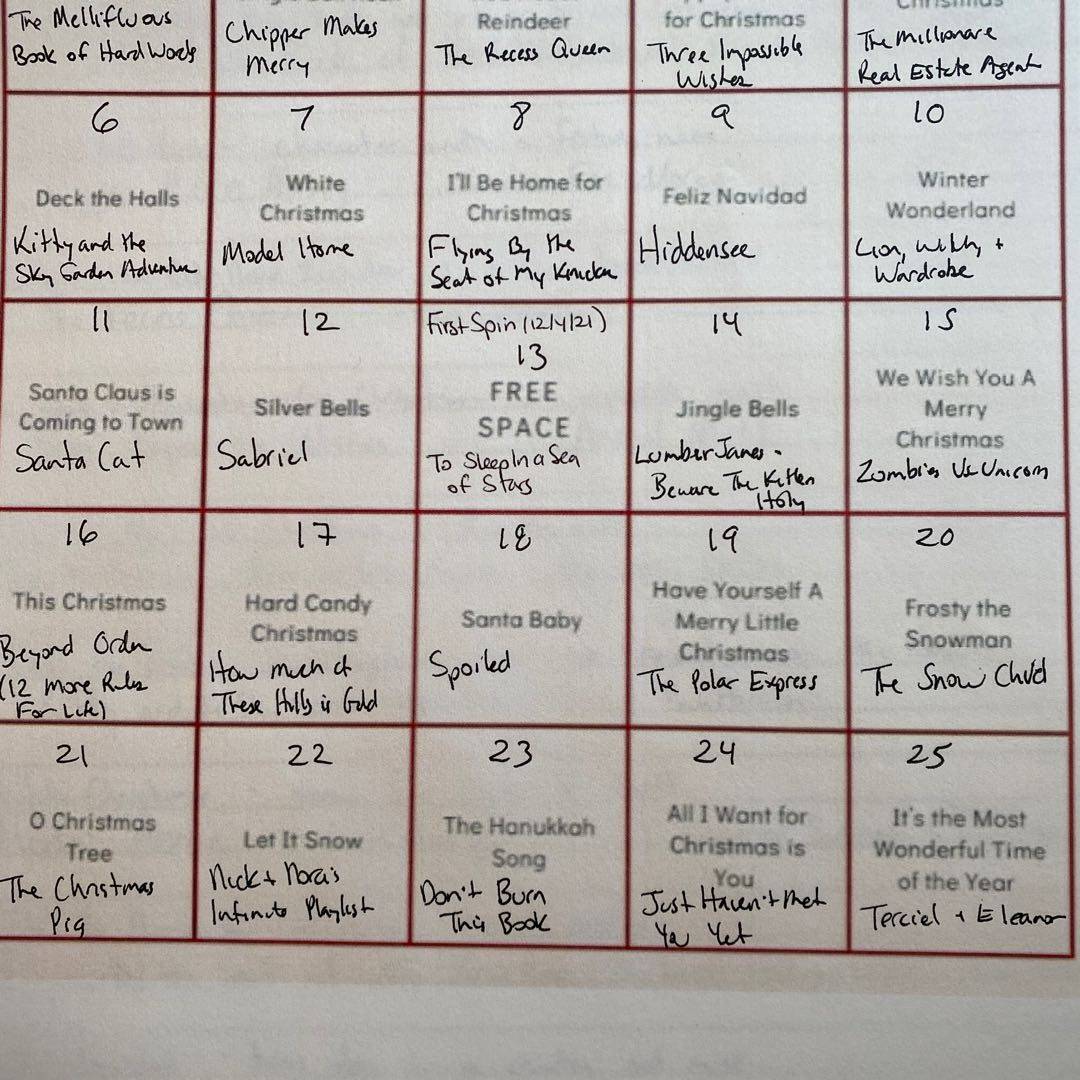 The Mellifluous
Book of Hard Words
Chipper Makes
Merry
Reindeer
The Recess Queen
for Christmas
Three Impossible
Wishes
Christmas
The Millionare
Real Estate Agent
6
Deck the Halls
Kitty and the
Sky Garden Adventure
7
White
Christmas
Model Home
8
I'll Be Home for
Christmas
Flying By the
Seat of My Knickers
9
Feliz Navidad
Hiddensee
10
Winter
Wonderland
Lion, Witch +
Wardrobe
11
Santa Claus is
Coming to Town
Santa Cat
12
Silver Bells
Sabriel
First Spin (12/4/21)
13
FREE
SPACE
To Sleep In a Sea
of Stars
14
Jingle Bells
LumberJanes -
Beware The Kitten
Holy
15
We Wish You A
Merry
Christmas
Zombies Vs Unicorn
16
This Christmas
Beyond Order
(12 More Rules
For Life)
17
Hard Candy
Christmas
How much of
These Hills is Gold
18
Santa Baby
Spoiled
19
Have Yourself A
Merry Little
Christmas
The Polar Express
20
Frosty the
Snowman
The Snow Child
21
O Christmas
Tree
The Christmas
Pig
22
Let It Snow
Nick + Nora's
Infinite Playlist
23
The Hanukkah
Song
Don't Burn
This Book
24
All I Want for
Christmas is
You
Just Haven't Met
Ya Yet
25
It's the Most
Wonderful Time
of the Year
Terciel + Eleanor